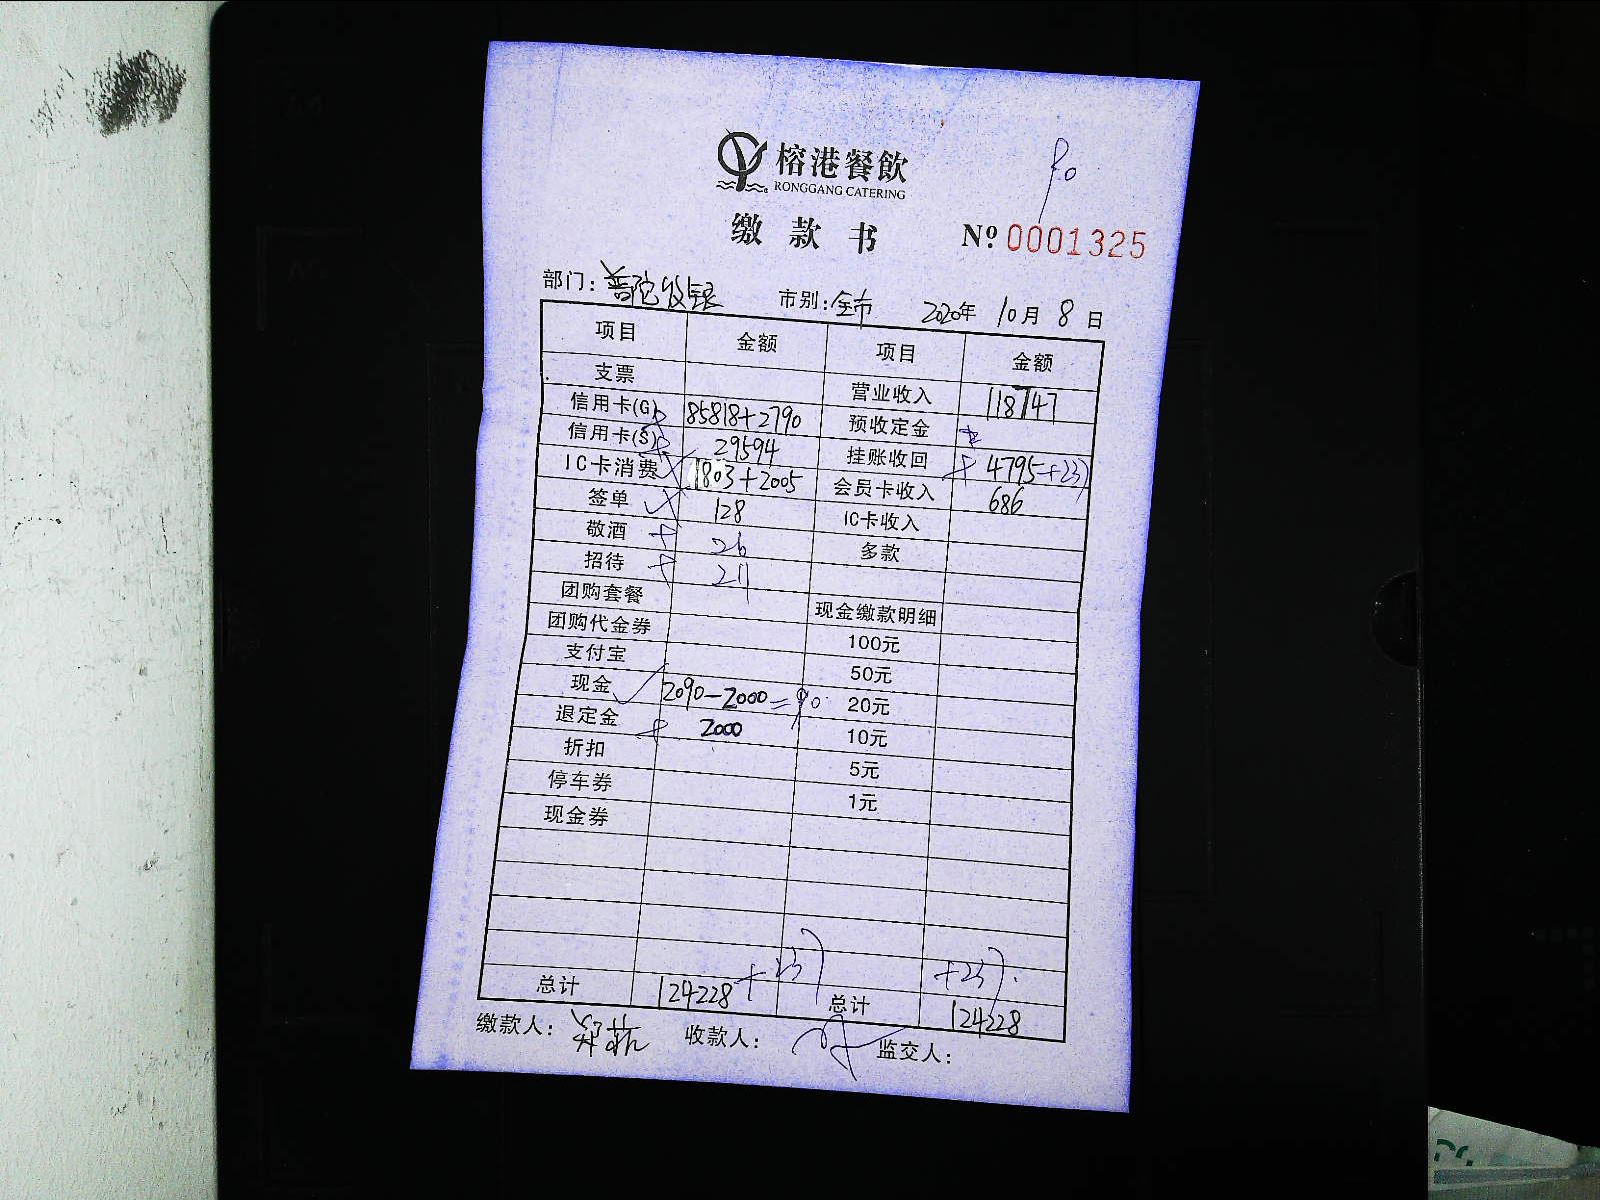 榕港餐飲
RONGGANG CATERING
90
缴款书 Nº 0001325
部门：普陀收银 市别：全市 2020年 10月 8日
项目 金额 项目 金额
支票 营业收入 118747
信用卡(G) 85818+2790 预收定金
信用卡(S) 29594 挂账收回 4795+237
IC卡消费 1803+2005 会员卡收入 686
签单 128 IC卡收入
敬酒 26 多款
招待 211
团购套餐 现金缴款明细
团购代金券 100元
支付宝 50元
现金 2090-2000=90 20元
退定金 2000 10元
折扣 5元
停车券 1元
现金券
总计 124228 +237 总计 124228 +237
缴款人： 收款人： 监交人：